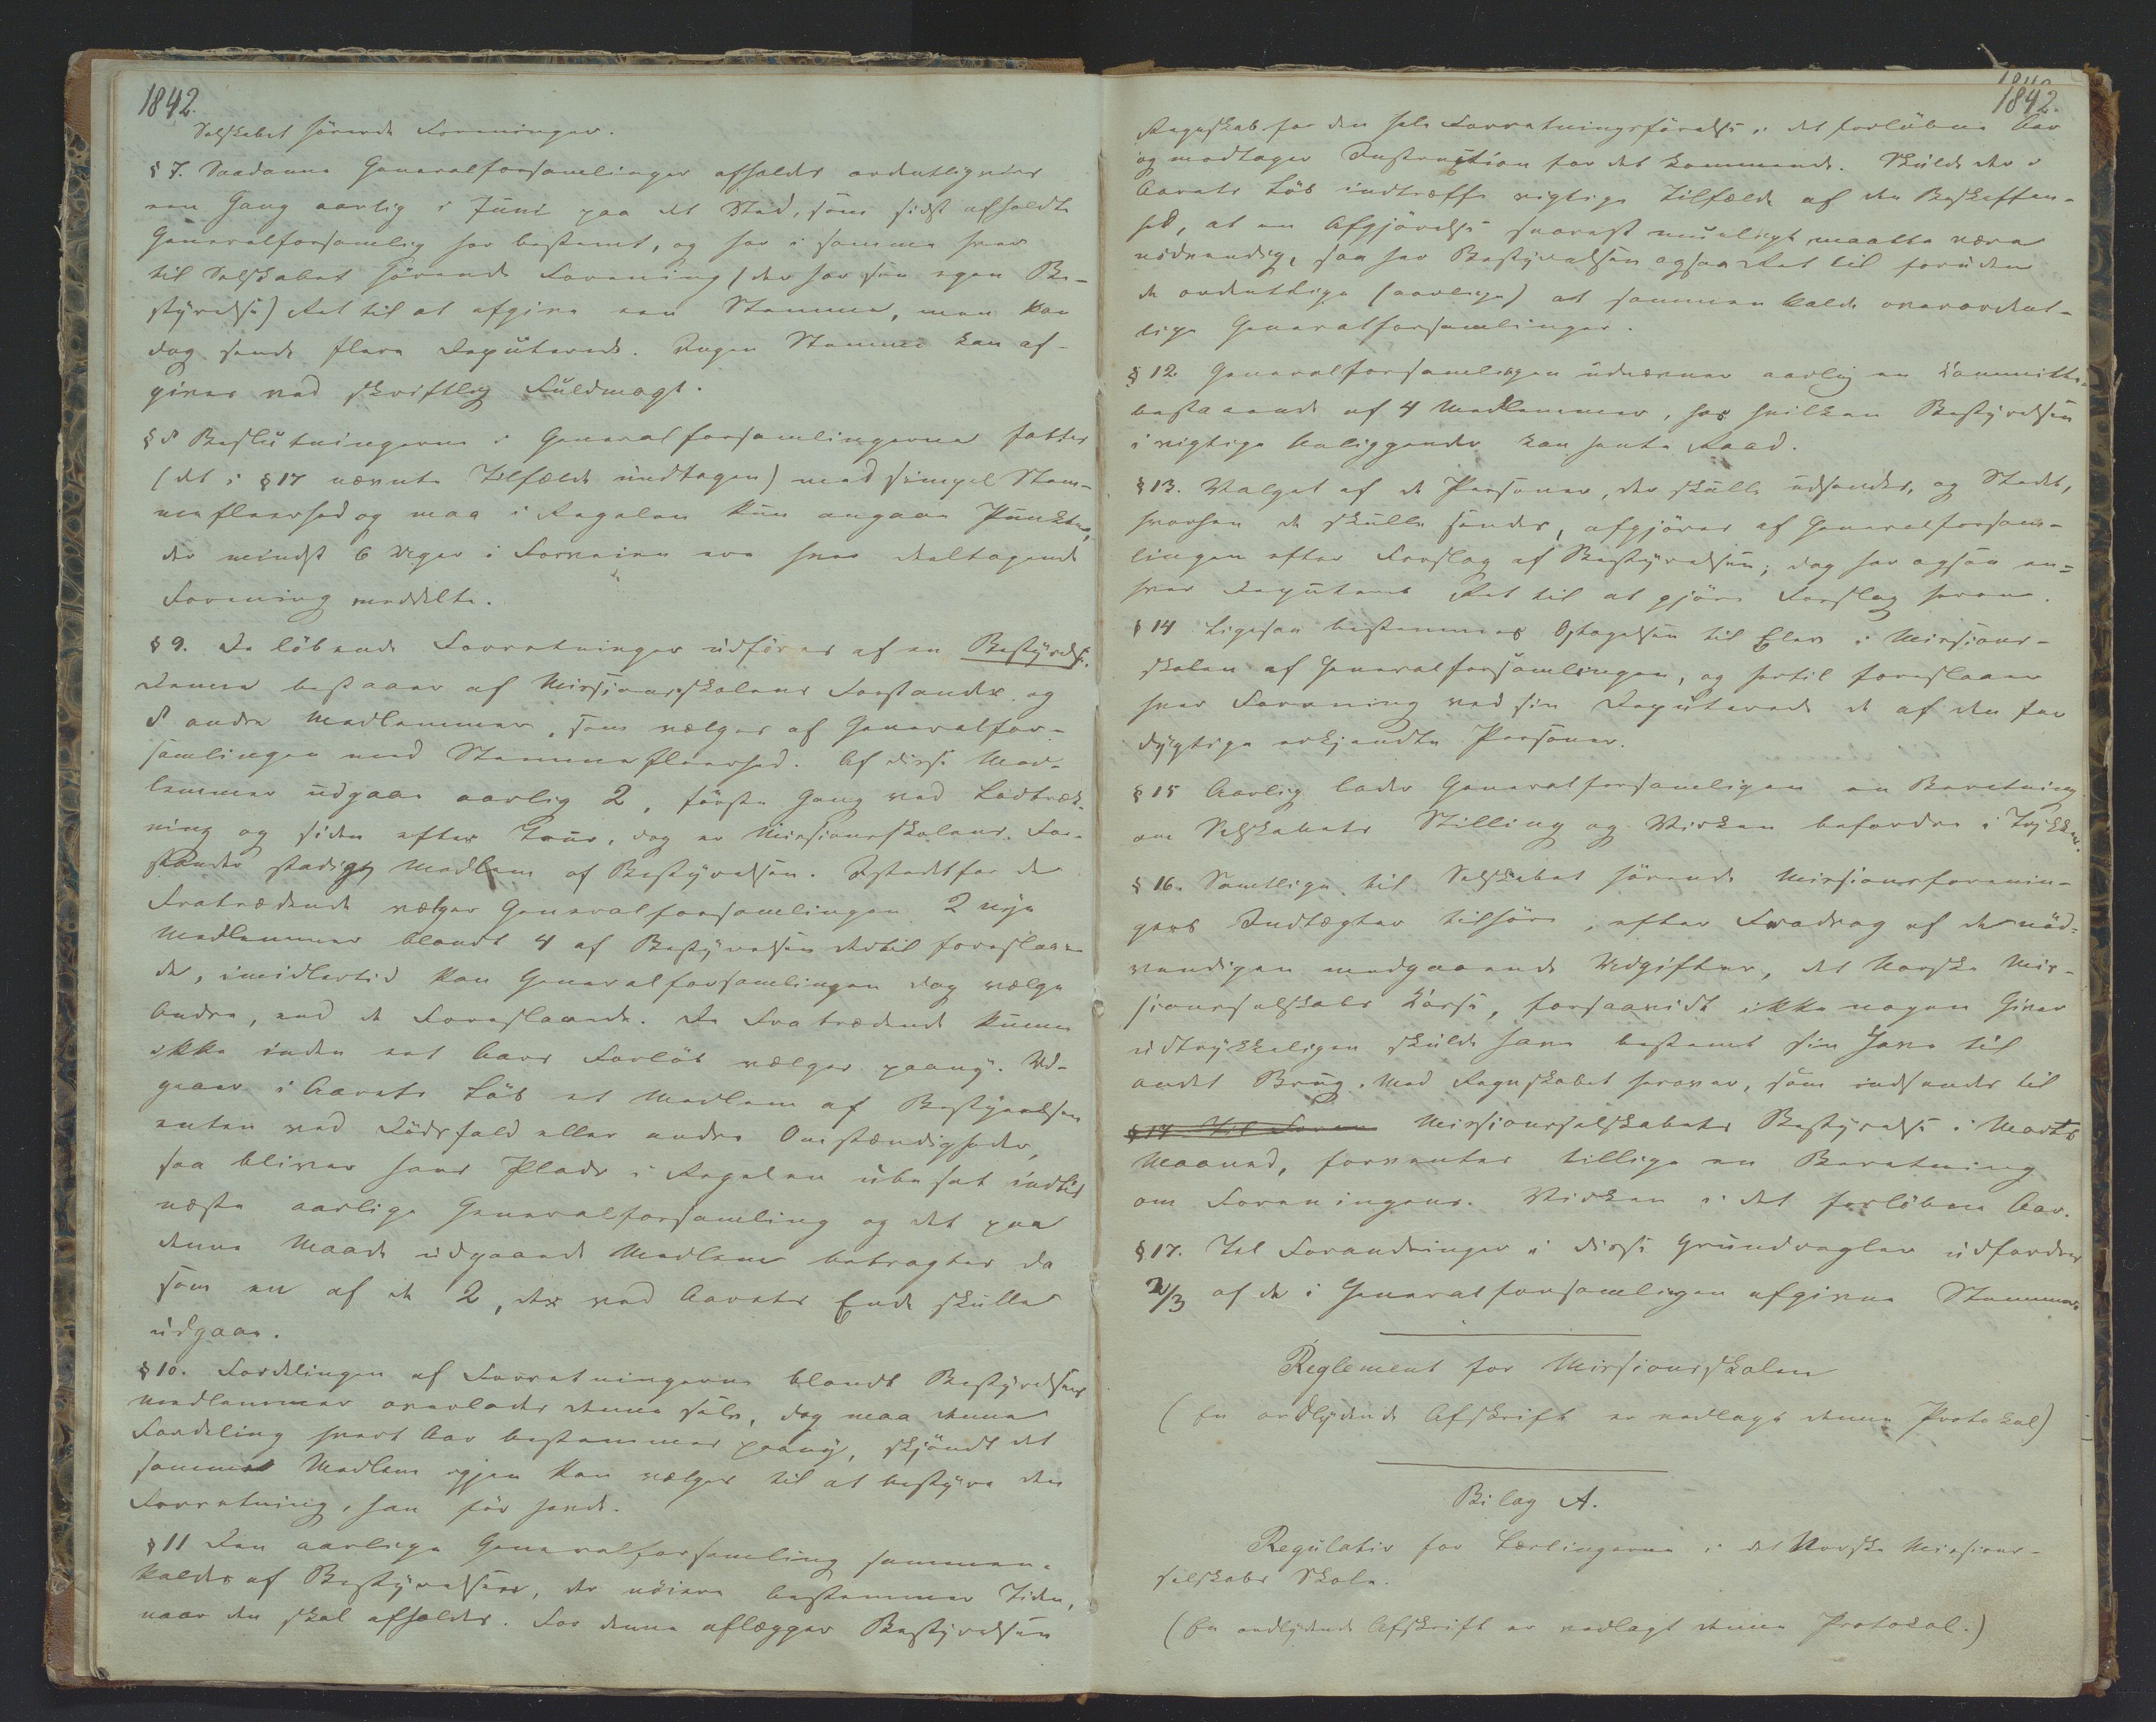 1842.
Selskabet hörende Foreninger.
§ 7. Saadanne Generalforsamlinger afholdes ordentligviis
een Gang aarlig i Juni paa det Sted, som sidst afholdte
Generalforsamlig har bestemt, og har i samme hver
til Selskabet hörende Forening (der har sin egen Be-
styrelse) Ret til at afgive een Stemme, men kan
dog sende flere Deputerede. Ingen Stemme kan af-
gives ved skriftlig Fuldmagt.
§ 8 Beslutningerne i Generalforsamlingerne fattes
(det i § 17 nævnte Tilfælde undtagen) med simpel Stem-
mefleerhed og maa i Regelen kun angaae Punkter,
der mindst 6 Uger i Forveien ere hver deeltagende
Forening meddelte.
§ 9. De löbende Forretninger udföres af en Bestyrelse.
Denne bestaaer af Missionsskolens Forstander og
8 andre Medlemmer, som vælges af Generalfor-
samlingen med Stemmefleerhed. Af disse Med-
lemmer udgaae aarlig 2, förste Gang ved Lodtræk-
ning og siden efter Tour, dog er Missionsskolens For-
stander stadigt Medlem af Bestyrelsen. Istedetfor de
Fratrædende vælger Generalforsamlingen 2 nye
Medlemmer blandt 4 af Bestyrelsen dertil foreslaae-
de, imidlertid kan Generalforsamlingen dog vælge
Andre, end de Foreslaaede. De Fratrædende kunne
ikke inden eet Aars Forlöb vælges paany. Ud-
gaaer i Aarets Löb et Medlem af Bestyrelsen
enten ved Dödsfald eller andre Omstændigheder,
saa bliver hans Plads i Regelen ubesat indtil
næste aarlige Generalforsamling og det paa
denne Maade udgaaede Medlem betragtes da
som en af de 2, der ved Aarets Ende skulle
udgaae.
§ 10. Fordelingen af Forretningerne blandt Bestyrelsens
medlemmer overlades denne selv, dog maa denne
Fordeling hvert Aar bestemmes paany, skjöndt det
samme Medlem igjen kan vælges til at bestyre den
Forretning, han för havde.
§ 11 Den aarlige Generalforsamling sammen-
kaldes af Bestyrelsen, der nöiere bestemmer Tiden,
naar den skal afholdes. For denne aflægger Bestyrelsen
1842.
Regnskab for den hele Forretningsförelse i det forlöbne Aar
og modtager Instruction for det kommende. Skulde der i
Aarets Löb indtræffe vigtige Tilfælde af den Beskaffen-
hed, at en Afgjörelse snarest mueligt maatte være
nödvendig, saa har Bestyrelsen ogsaa Ret til foruden
de ordentlige (aarlige) at sammenkalde overordent-
lige Generalforsamlinger.
§ 12. Generalforsamlingen udnævner aarlig en Committee
bestaaende af 4 Medlemmer, hos hvilken Bestyrelsen
i vigtige Anliggender kan hente Raad.
§ 13. Valget af de Personer, der skulle udsendes, og Stedet,
hvorhen de skulle sendes, afgjöres af Generalforsam-
lingen efter Forslag af Bestyrelsen; dog har ogsaa en-
hver Deputeret Ret til at gjöre Forslag herom.
§ 14 Ligesaa bestemmes Optagelsen til Elev i Missions-
skolen af Generalforsamlingen, og hertil foreslaaer
hver Forening ved sin Deputerede de af den for
dygtige erkjendte Personer.
§ 15 Aarlig lader Generalforsamligen en Beretning
om Selskabets Stilling og Virken befordre i Trykken.
§ 16. Samtlige til Selskabet hörende Missionsforenin-
gers Indtægter tilföre, efter Fradrag af de nöd-
vendigen medgaaende Udgifter, det Norske Mis-
sionsselskabs Casse, forsaavidt ikke nogen Giver
udtrykkeligen skulde have bestemt sin Gave til
andet Brug. Med Regnskabet herover, som indsendes til
§ 17. Til Foran Missionsselskabets Bestyrelse i Marts
Maaned, forventes tillige en Beretning
om Foreningens Virken i det forlöbne Aar.
§ 17. Til Forandringer i disse Grundregler udfordres
2/3 af de i Generalforsamligen afgivne Stemmer
Reglement for Missionsskolen
(En ordlydende Afskrift er vedlagt denne Protokol)
Bilag A.
Regulativ for Lærlingerne i det Norske Missions-
selskabs Skole.
(En ordlydende Afskrift er vedlagt denne Protokol.)